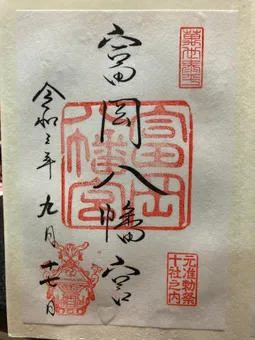 元准勅祭
十社之内
富岡八幡宮
富岡
八幡宮
令和三年 九月 十七日